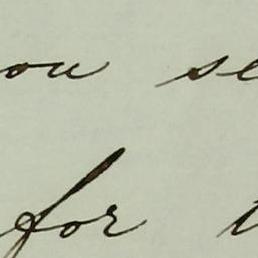 ou se
for t